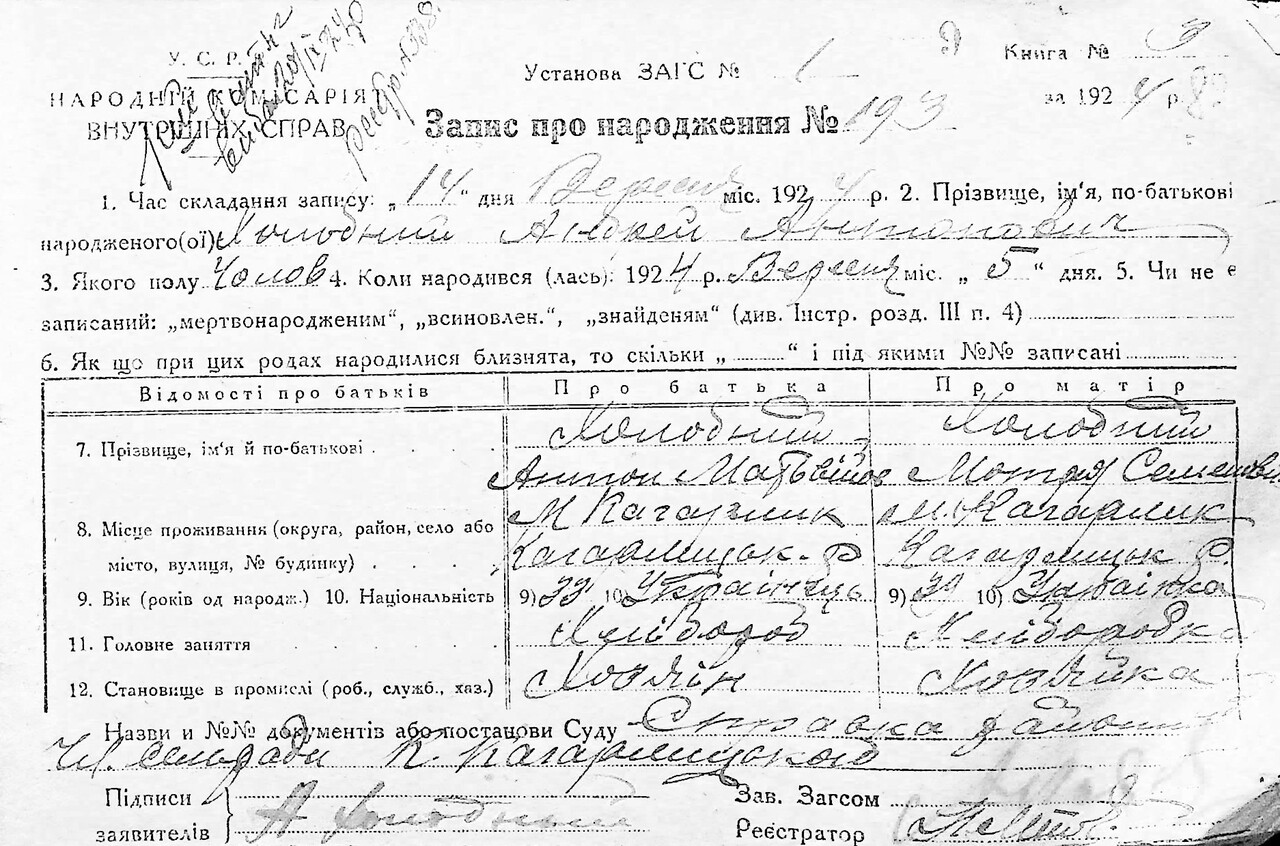 У. С. Р.
НАРОДНІЙ КОМІСАРІЯТ
ВНУТРІШНІХ СПРАВ
Установа ЗАГС № 1
Книга № 3
за 1924 р.
Запис про народження № 193
1. Час складання запису: „14“ дня Вересня міс. 1924 р. 2. Прізвище, ім'я, по-батькові
народженого(ої) Холодний Андрей Антонович
3. Якого полу Чолов 4. Коли народився (лась): 1924 р. Вересня міс. „5“ дня. 5. Чи не є
записаний: „мертвонародженим“, „всиновлен.“, „знайденям“ (див. Інстр. розд. III п. 4)
6. Як що при цих родах народилися близнята, то скільки „ “ і під якими №№ записані
Відомості про батьків Про батька Про матір
7. Прізвище, ім'я й по-батькові Холодний Холодний
Антон Матьвійов Мотря Семенов
8. Місце проживання (округа, район, село або М Кагарлик М. Кагарлик
місто, вулиця, № будинку) Кагарлицьк. Р Кагарлицьк Р.
9. Вік (років од народж.) 10. Національність 9) 33 10) Українець 9) 10) Українка
11. Головне заняття Хлібороб Хліборобка
12. Становище в промислі (роб., служб., хаз.) Хозяін Хозяйка
Назви и №№ документів або постанови Суду Справка
сельради Кагарлицького
Підписи
заявителів } А Холодний
Зав. Загсом
Реєстратор